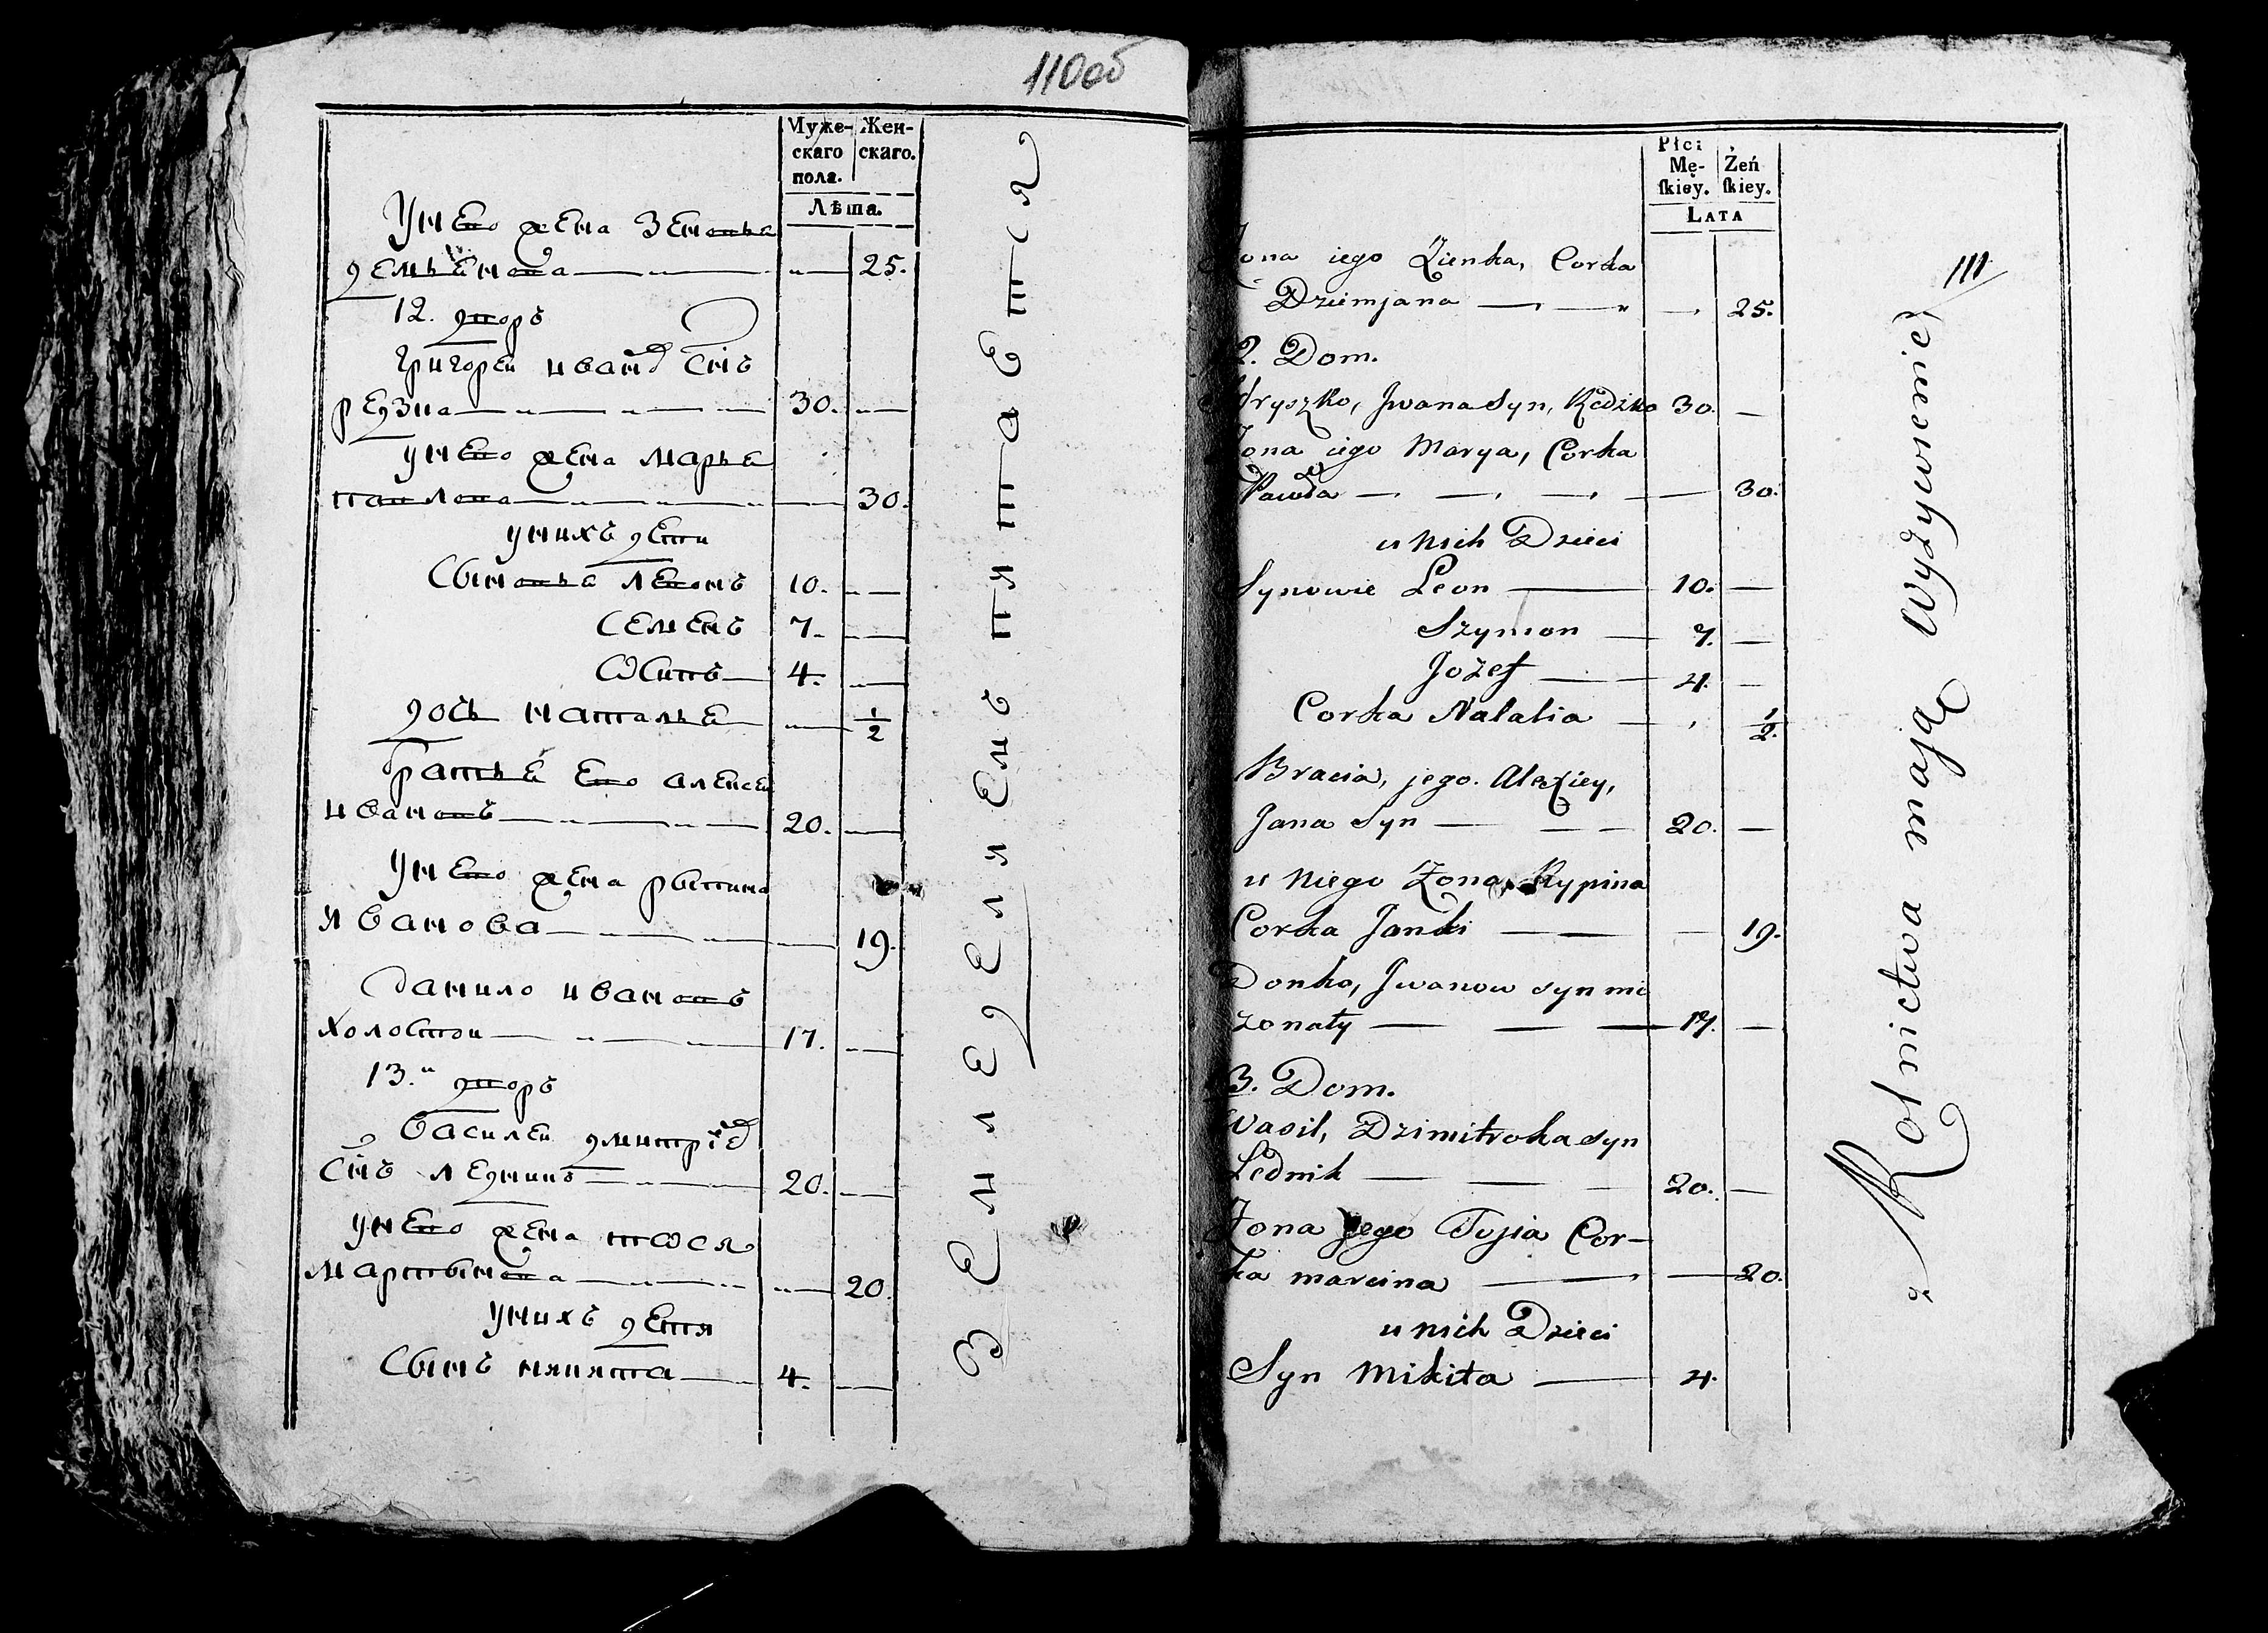 110об
Муже- Жен-
скаго скаго.
пола.
Лѣта.
У него жена Зеновья
демьянова — „ — 25.
12. дворъ
григорей иванов Снъ
редзка — 30. „ —
у него жена марья
павлова — 30.
у нихъ дети
Сыновья леонъ 10. „ —
семенъ 7. „ —
Осипъ 4. „ —
дочь наталья „ — 1/2
братья ево алексей
ивановъ — 20. „ —
У него жена рыпина
Иванова — 19.
данило ивановъ
холостой — 17. „ —
13.й дворъ
василей дмитріев
Снъ ледникъ — 20. „ —
у него жена тюся
мартынова — „ — 20
У нихъ детя
Сынъ микита — 4. „ —
ЗЕмлЕдЕлиЕмъ питаЕтся
Płci
Mę- Żeń
skiey. skiey.
LATA
111
Zona iego Zienka, Corka
Dziemjana — 25.
12. Dom.
Hryszko, Jwana Syn, Redzko 30. —
Zona iego Marya, Corka
Pawła — 30.
u nich Dzieci
Synowie Leon — 10. —
Szymon — 7. —
Jozef — 4. —
Corka Natalia — 1/2.
Bracia, jego. Alexiey,
Jana Syn — 20. —
u niego Zona, Rypina
Corka Janki — 19.
Donko, Jwanow syn nie
zonaty — 17. —
13. Dom.
Wasil, Dzimitroka syn
Lednik — 20. —
Zona jego Tusia Cor-
ka marcina — 20.
u nich Dzieci
Syn Mikita — 4.
z Rolnictwa mają Wyżywienie